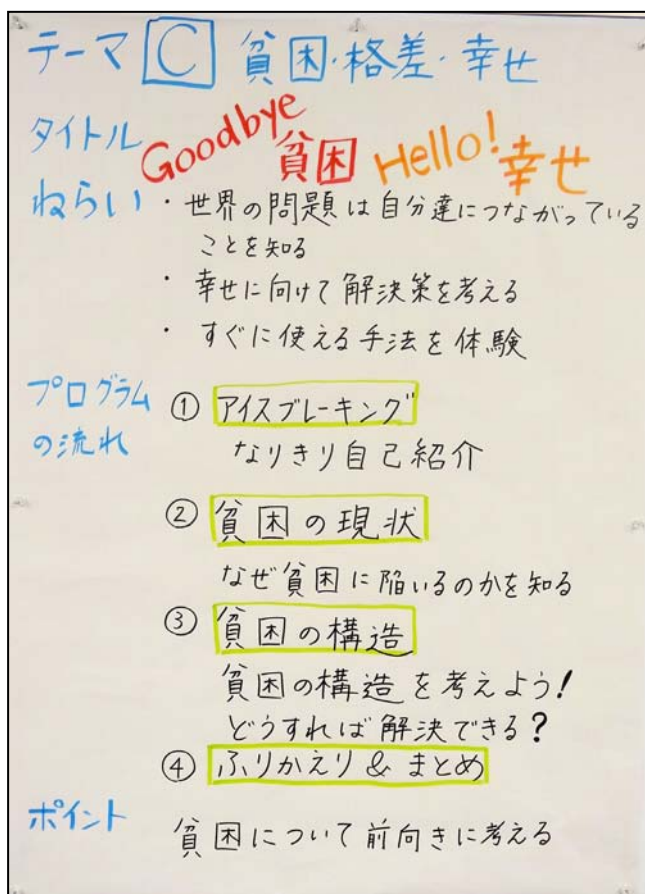 テーマ C 貧困・格差・幸せ
タイトル Goodbye 貧困 Hello! 幸せ
ねらい ・世界の問題は自分達につながっている
ことを知る
・幸せに向けて解決策を考える
・すぐに使える手法を体験
プログラム
の流れ
① アイスブレーキング
なりきり自己紹介
② 貧困の現状
なぜ貧困に陥いるのかを知る
③ 貧困の構造
貧困の構造を考えよう!
どうすれば解決できる?
④ ふりかえり & まとめ
ポイント 貧困について前向きに考える